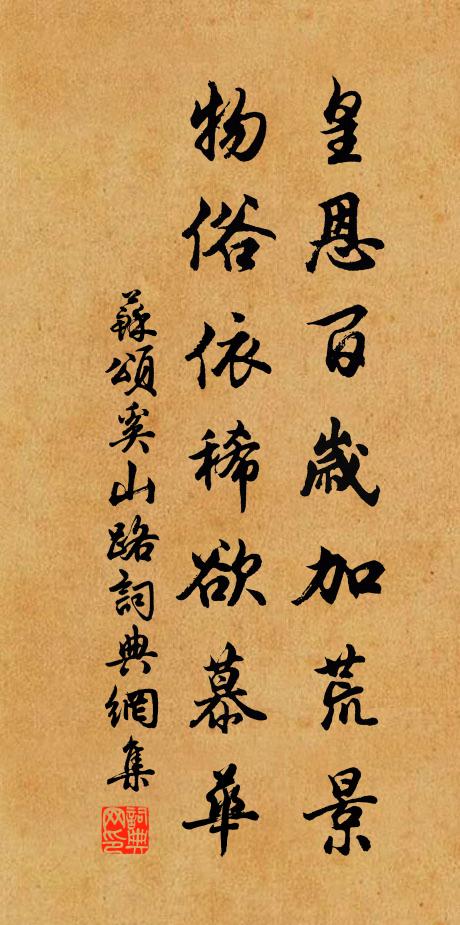 皇恩百歲加荒景
物俗依稀欲慕華
蘇頌奚山路詞典網集
詞典
网印